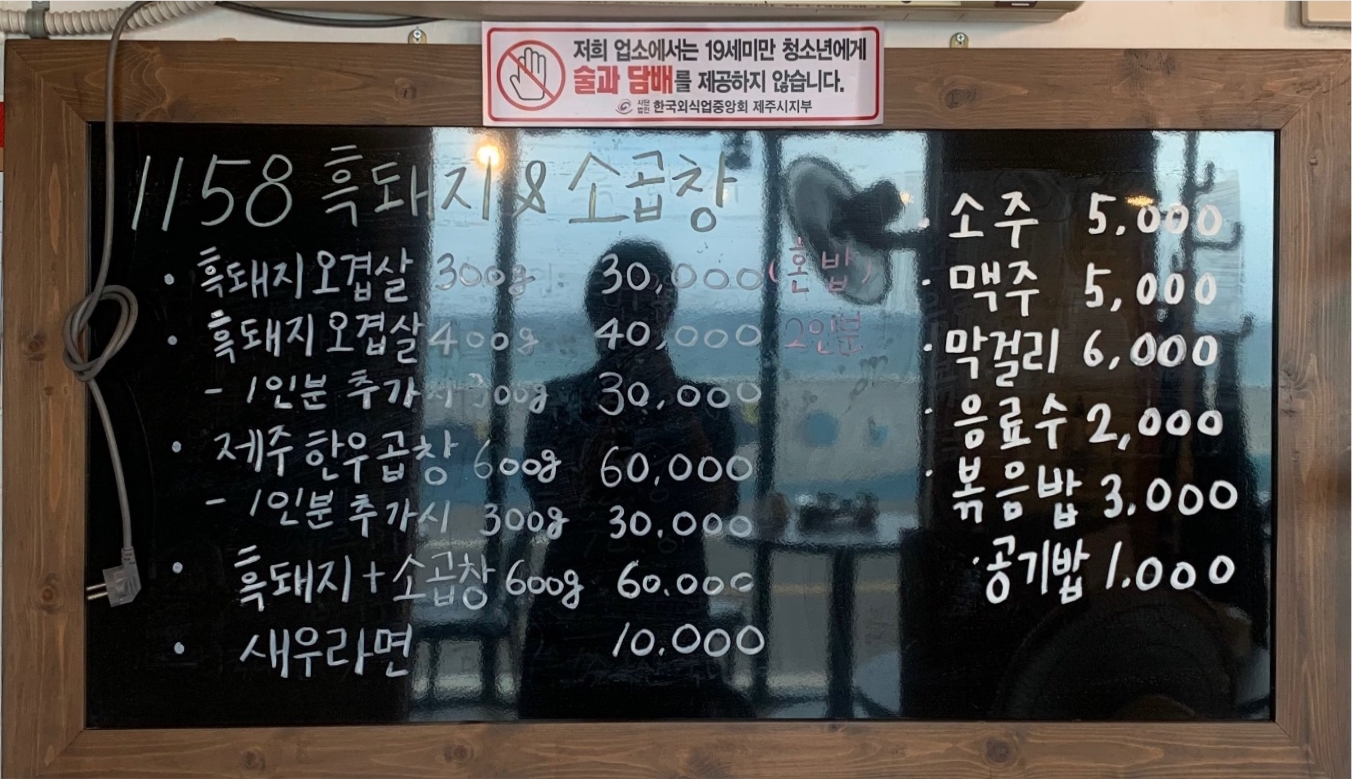 저희 업소에서는 19세미만 청소년에게
술과 담배를 제공하지 않습니다.
사단법인 한국외식업중앙회 제주시지부
1158 흑돼지 & 소곱창
· 흑돼지오겹살 300g 30,000 (혼밥)
· 흑돼지오겹살 400g 40,000 2인분
- 1인분 추가시 300g 30,000
· 제주한우곱창 600g 60,000
- 1인분 추가시 300g 30.000
· 흑돼지+소곱창 600g 60.000
· 새우라면 10.000
· 소주 5,000
· 맥주 5,000
· 막걸리 6,000
· 음료수 2,000
· 볶음밥 3.000
· 공기밥 1.000